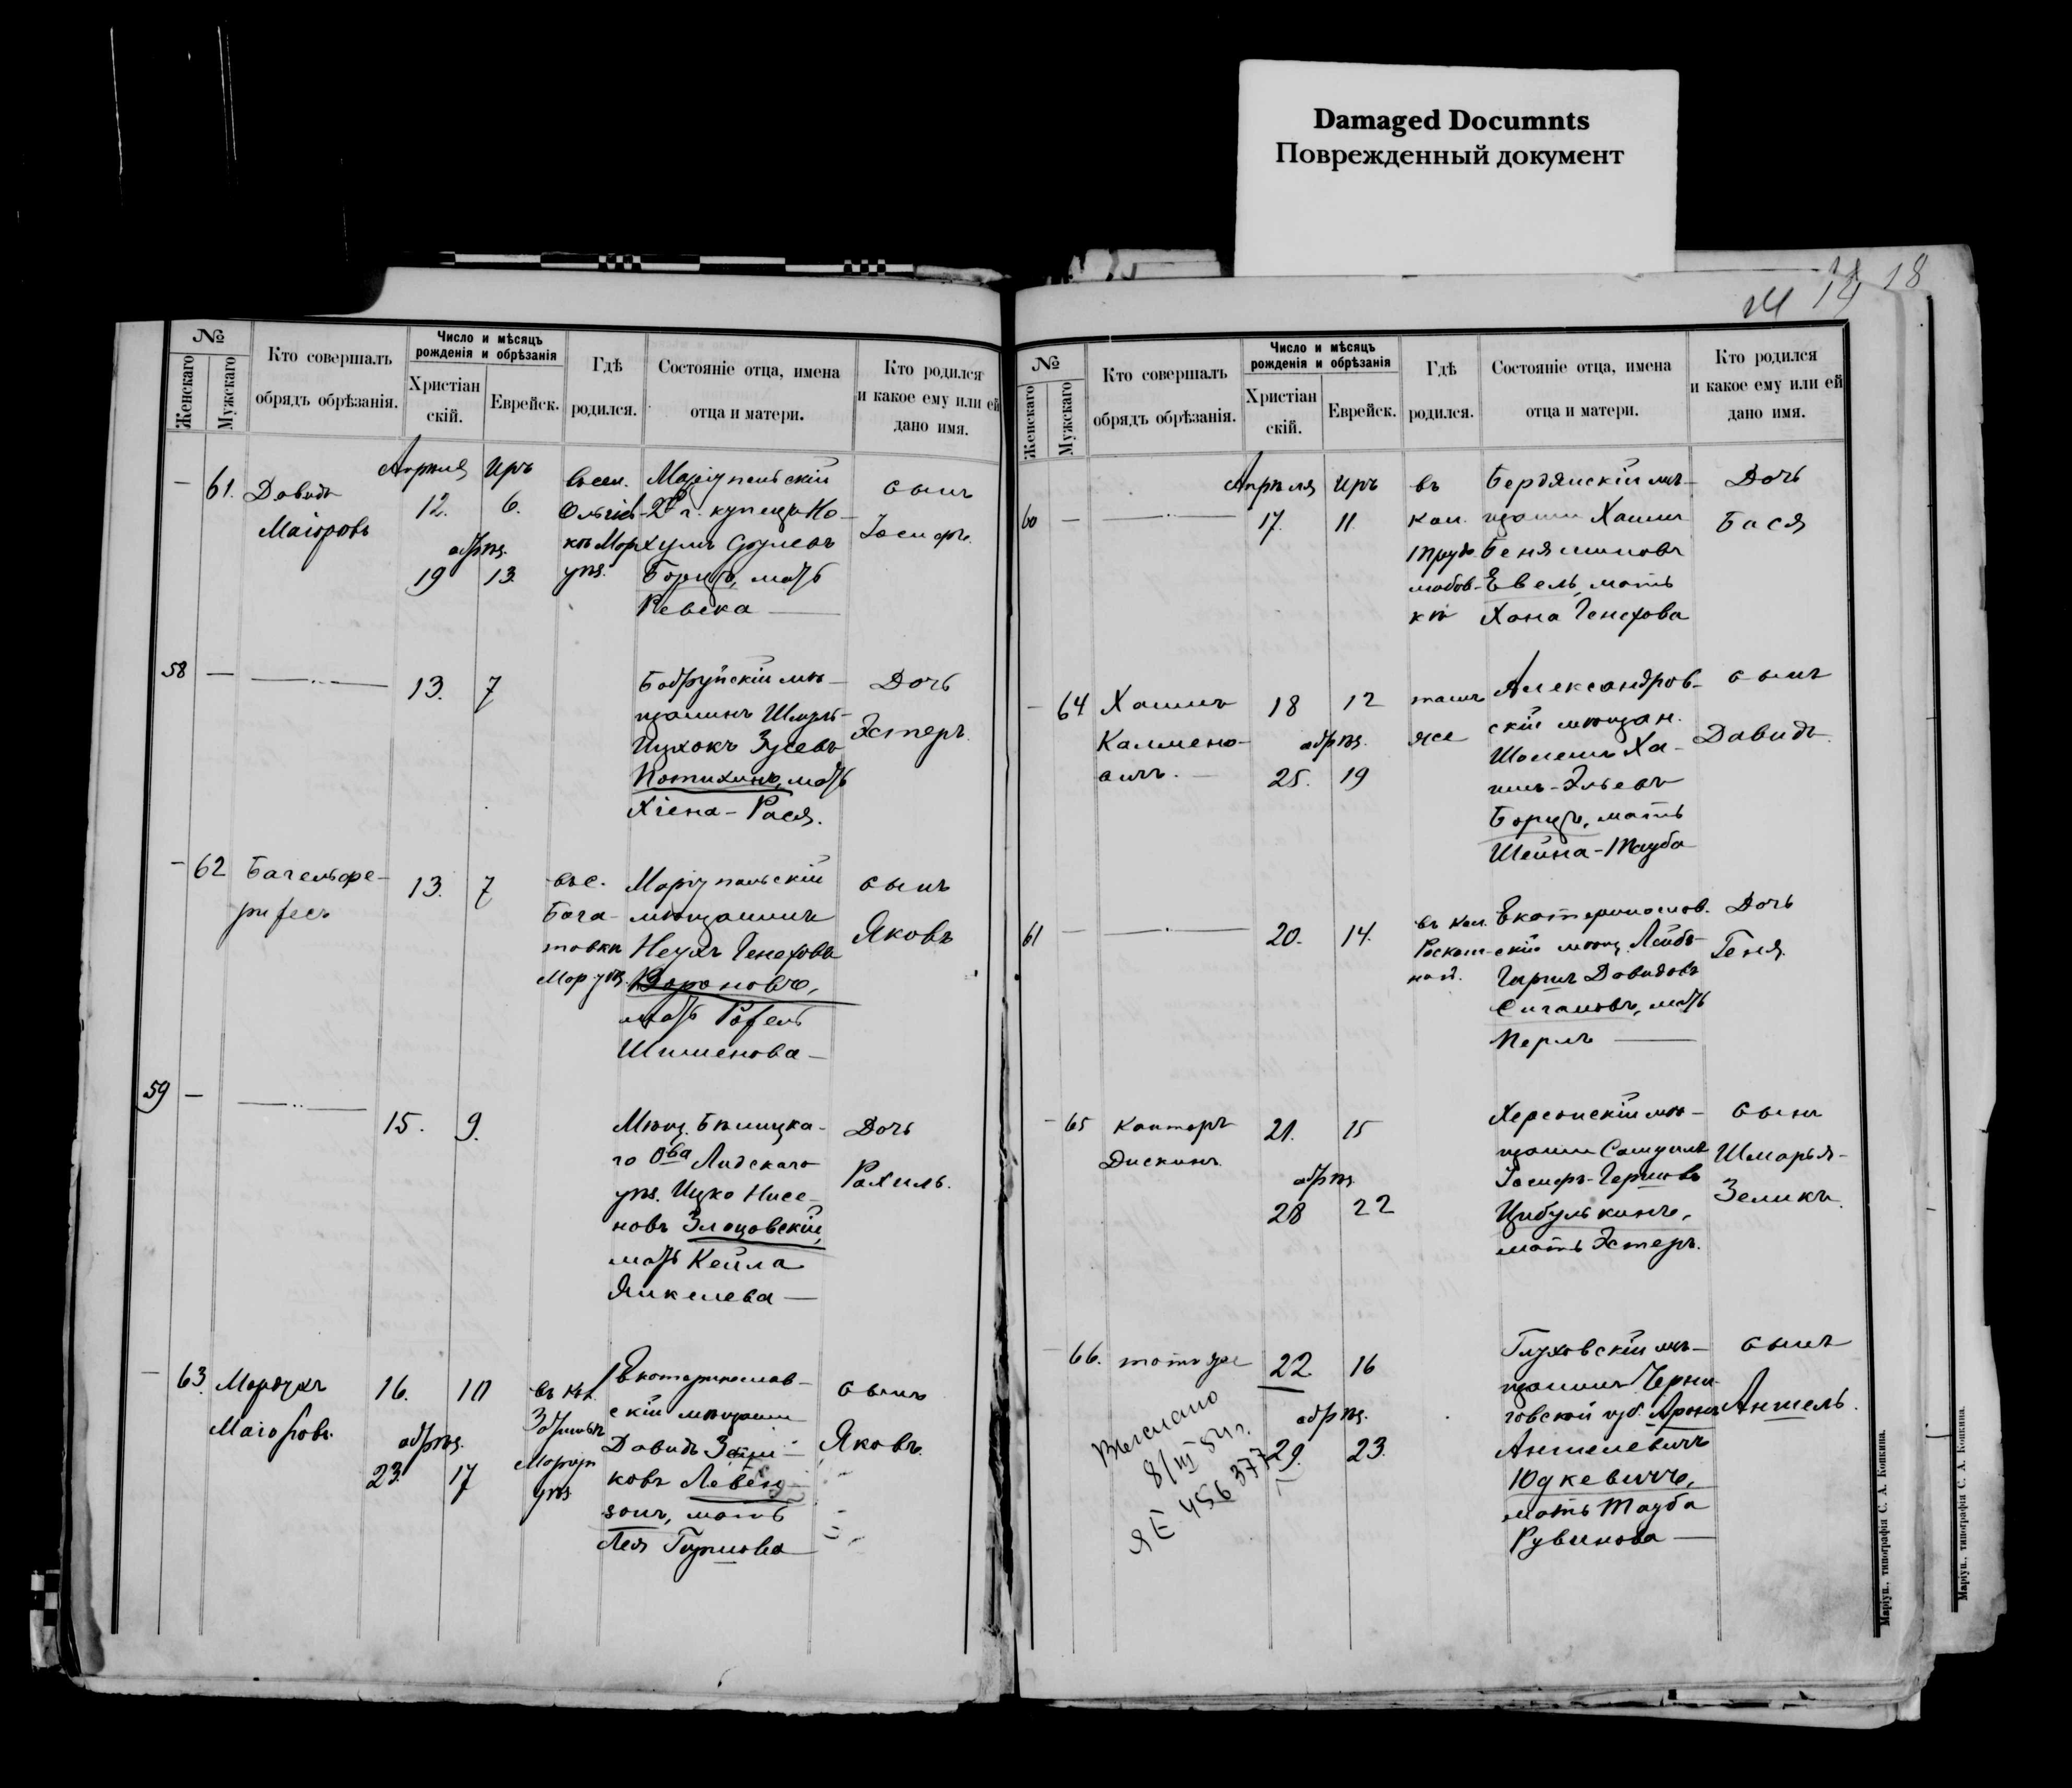 Damaged Documnts
Поврежденный документ
14 18
№
Женскаго
Мужскаго
Кто совершалъ
обрядъ обрѣзанія.
Число и мѣсяцъ
рожденія и обрѣзанія
Христіан
скій.
Еврейск.
Гдѣ
родился.
Состояніе отца, имена
отца и матери.
Кто родился
и какое ему или ей
дано имя.
— 61. Давидъ
Маіоровъ
Апрѣля Иръ
12. 6.
обрѣз.
19 13.
въ сел.
уѣз.
Маріупольскій
2й г. купецъ На-
хумъ Срулевъ
Борцъ, мать
Ревека —
сынъ
Іосифъ.
58 — —
13. 7
Бобруйскій мѣ-
щанинъ Шмуль-
Ицхокъ Зусевъ
Потихинъ, мать
Хіена-Рася.
Дочь
Эстеръ.
— 62
13. 7
въ с.
Бога-
товкѣ
Мар. уѣз.
Маріупольскій
мѣщанинъ
Неухъ Генеховъ
Вороновъ,
мать Рохель
Шименова —
сынъ
Яковъ
59 — —
15. 9.
Мѣщ. Бѣлицка-
го Оба Лидскаго
уѣз. Ицко Нисе-
новъ Злоцовскій,
мать Кейла
Янкелева —
Дочь
Рахиль.
— 63. Мордухъ
Маіоровъ.
16. 10
обрѣз.
23. 17
Маріуп
уѣз
Екатеринослав-
скій мѣщанин
Давидъ
ковъ Левен-
зонъ, мать
Лея Гиршова
сынъ
Яковъ.
№
Женскаго
Мужскаго
Кто совершалъ
обрядъ обрѣзанія.
Число и мѣсяцъ
рожденія и обрѣзанія
Христіан
скій.
Еврейск.
Гдѣ
родился.
Состояніе отца, имена
отца и матери.
Кто родился
и какое ему или ей
дано имя.
60 — —
Апрѣля Иръ
17. 11
въ
кол.
Трудо
любов-
кѣ
Бердянскій мѣ-
щанин Хаим
Беняминовъ
Евель, мать
Хана Генехова
Дочь
Бася
— 64 Хаимъ
Калмено-
вичъ. —
18 12
обрѣз.
25. 19
тамъ
же
Александров-
скій мѣщан.
Шолемъ Ха-
имъ-Эльевъ
Борцъ, мать
Шейна-Тауба
сынъ
Давидъ.
61 — —
20. 14.
въ кол.
Роскош-
ной.
Екатеринослав.
скій мѣщ. Лейб-
Гиршъ Давидовъ
Сигаловъ, мать
Перлъ —
Дочь
Геня.
— 65 Канторъ
Дискинъ.
21. 15
обрѣз.
28 22
Херсонскій мѣ-
щанин Самуилъ
Іосифъ-Гершовъ
Цибулькинъ,
мать Эстеръ.
сынъ
Шмарья-
Зеликъ.
— 66. тотъ же
22 16
обрѣз.
29. 23.
Выслано
8/III 54 г.
ЯЕ 456 377
Глуховскій мѣ-
щанинъ Черни-
говской губ. Аронъ
Аншелевичъ
Юдкевичъ,
мать Тауба
Рувинова —
сынъ
Аншель.
Маріуп., типографія С. А. Копкина.
Маріуп., типографія С. А. Копкина.